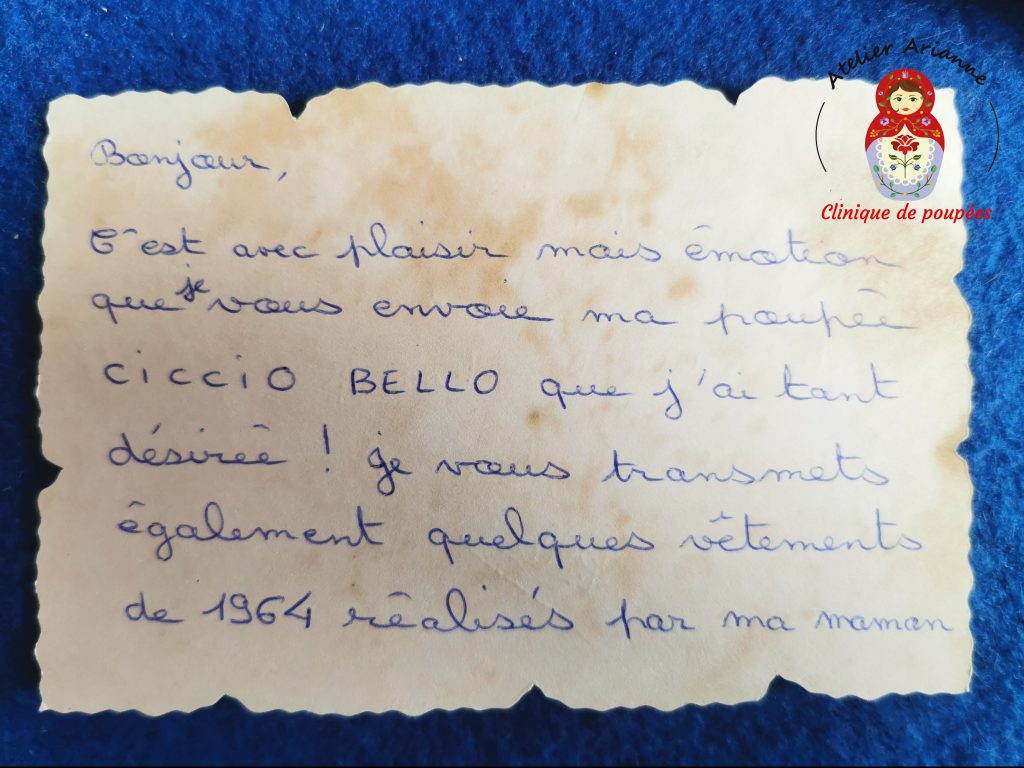 Atelier Arianne
Clinique de poupées
Bonjour,
C'est avec plaisir mais émotion
que je vous envoie ma poupée
CICCIO BELLO que j'ai tant
désirée ! je vous transmets
également quelques vêtements
de 1964 réalisés par ma maman